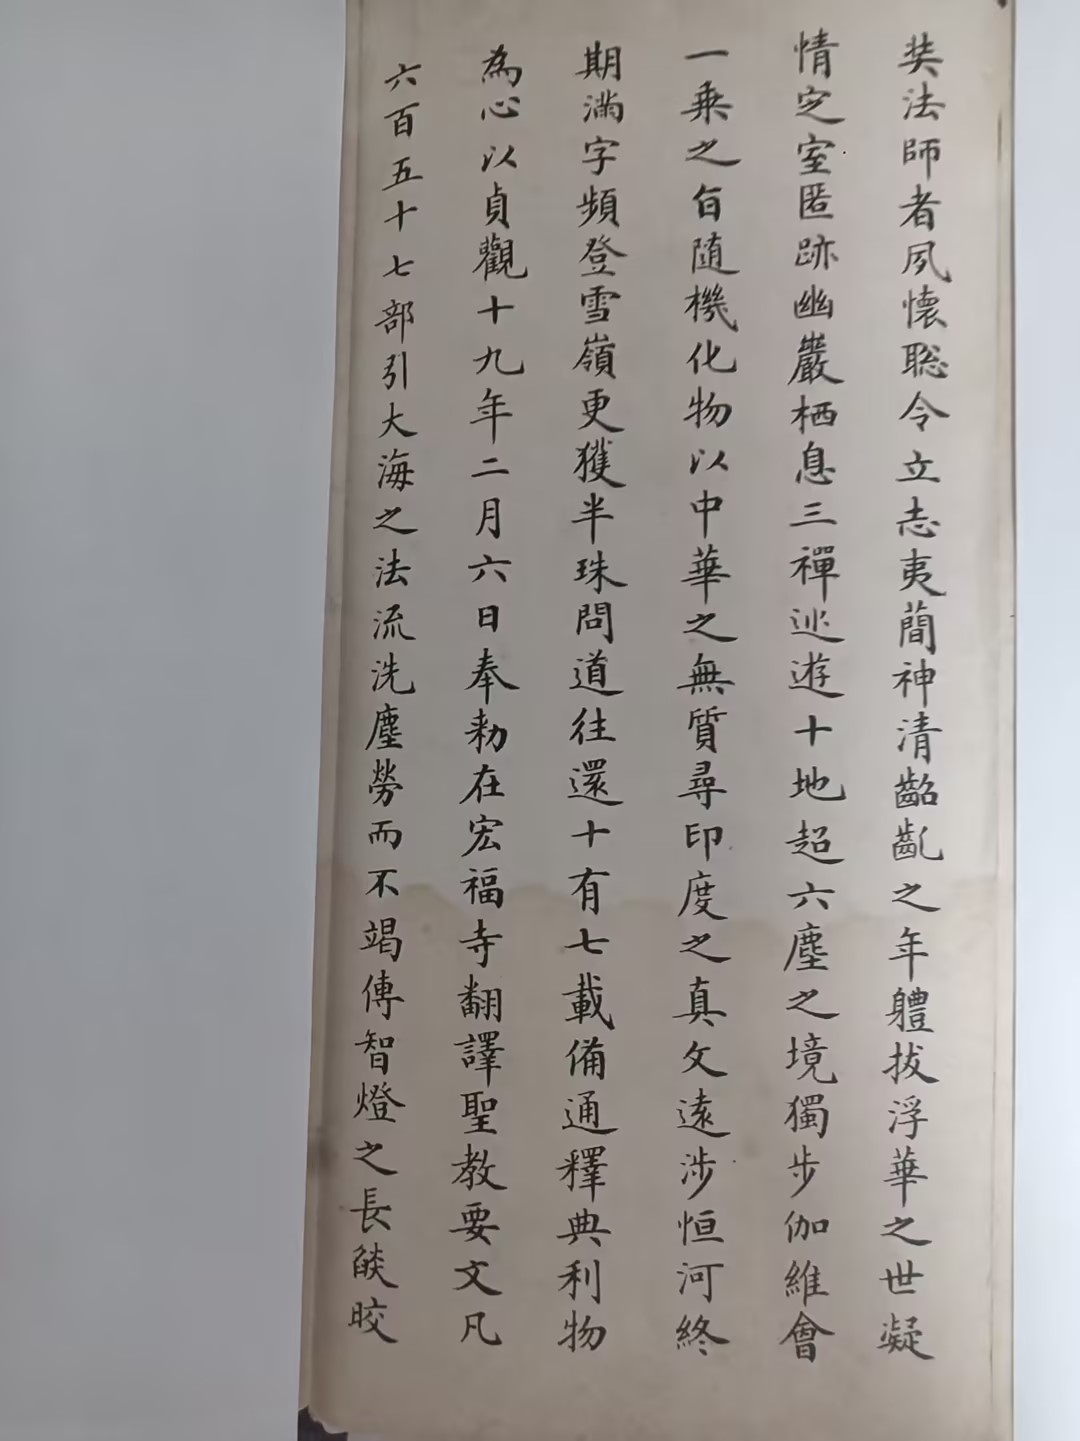 奘法師者夙懷聡令立志夷蕳神清齠齓之年軆拔浮華之世凝
情定室匿跡幽巖栖息三禪巡遊十地超六塵之境獨步伽維會
一乗之㫖随機化物以中華之無質尋印度之真文遠涉恒河終
期滿字頻登雪嶺更獲半珠問道往還十有七載備通釋典利物
為心以貞觀十九年二月六日奉勑在宏福寺翻譯聖教要文凡
六百五十七部引大海之法流洗塵勞而不竭傳智燈之長皎